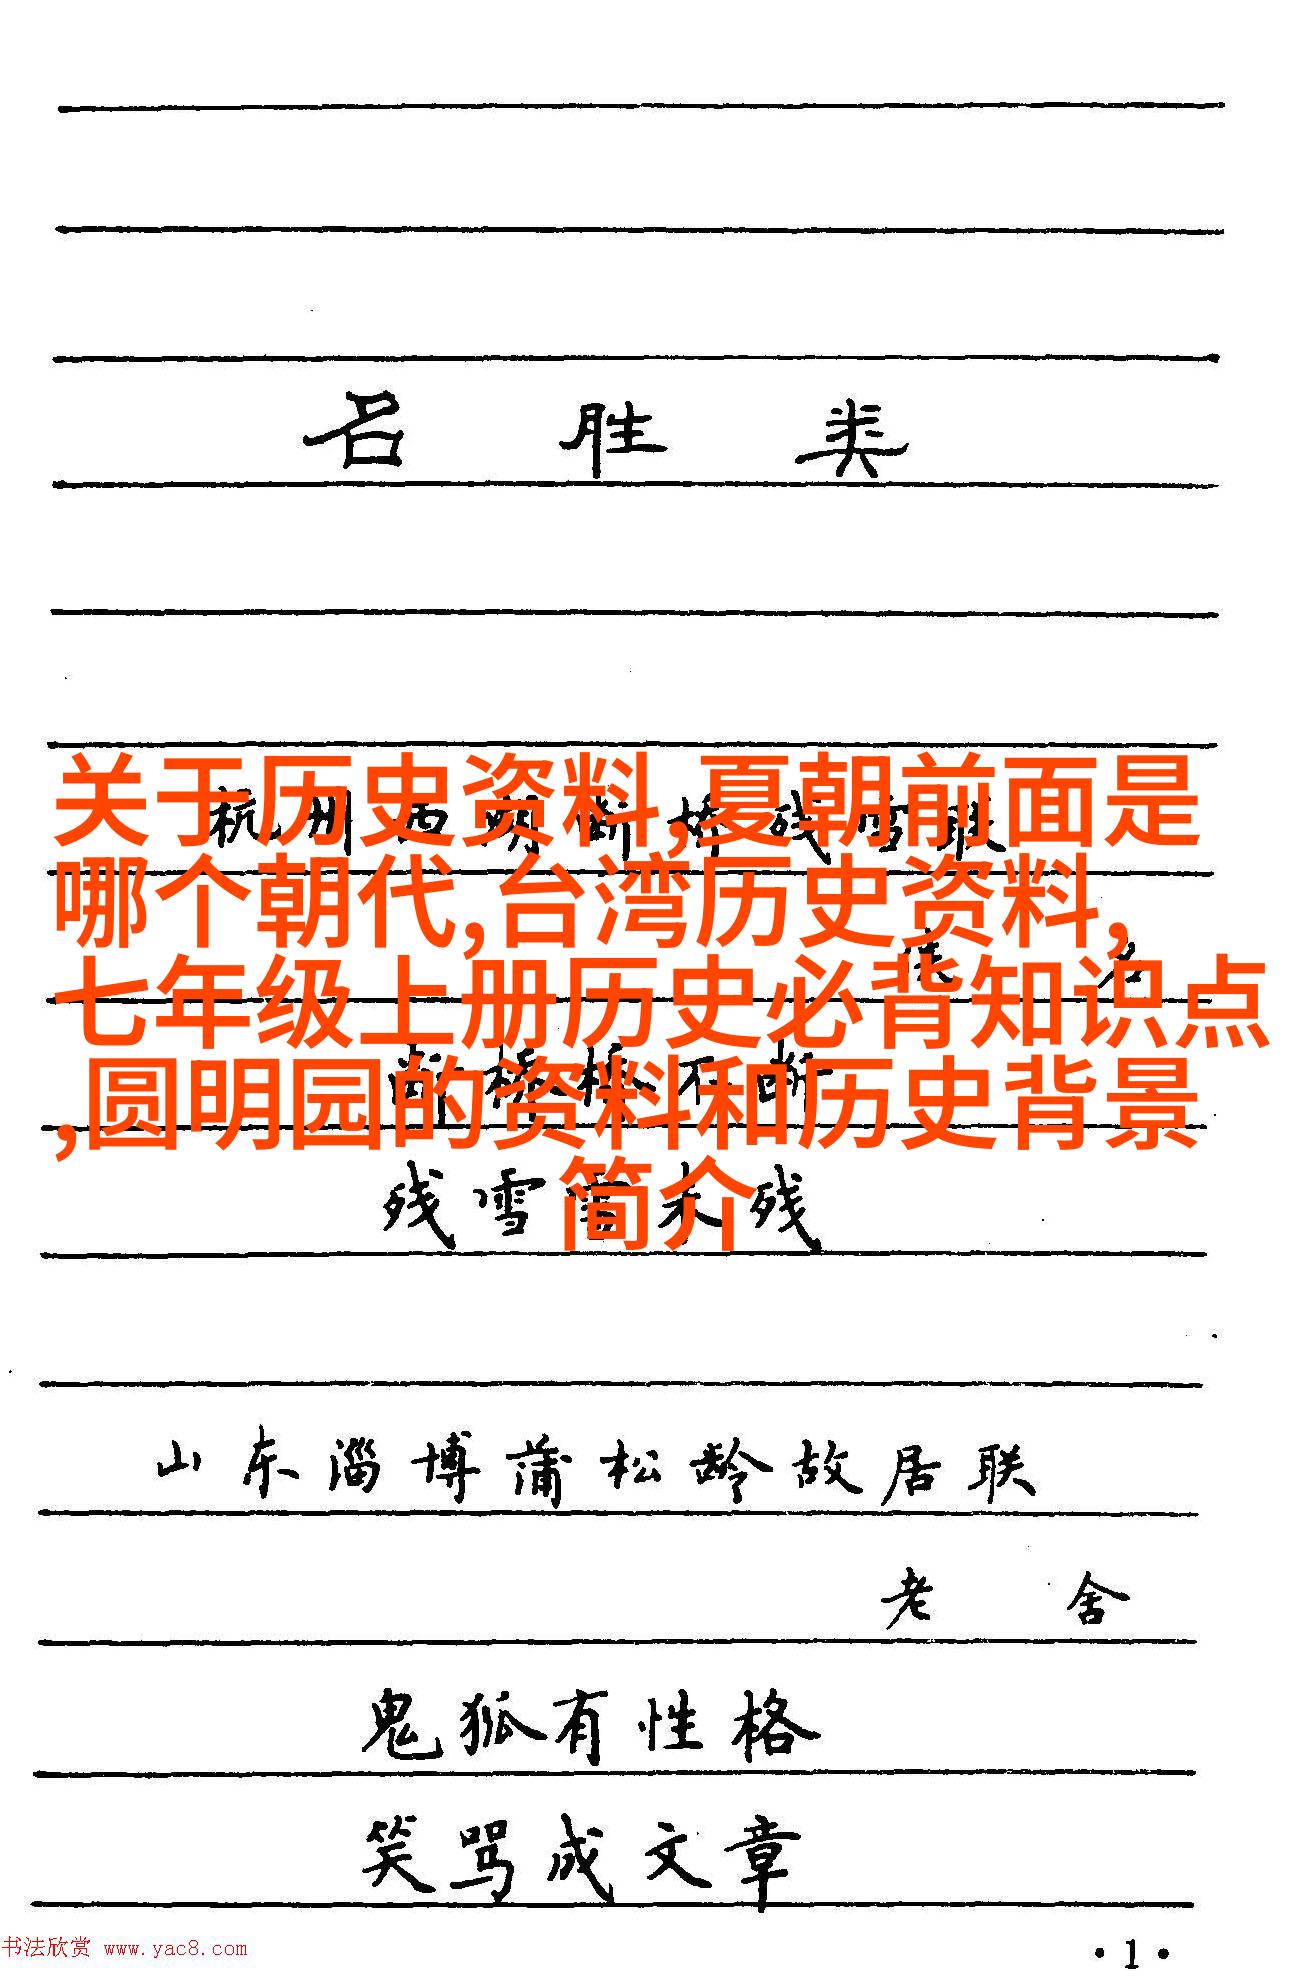 名胜类
关于历史资料,夏朝前面是
杭州西湖断桥残雪联
哪个朝代,台湾历史资料,
佚名
七年级上册历史必背知识点
断桥桥不断
,圆明园的资料和历史背景
残雪雪未残
简介
山东淄博蒲松龄故居联
老舍
鬼狐有性格
笑骂成文章
书法欣赏 www.yac8.com
·1·